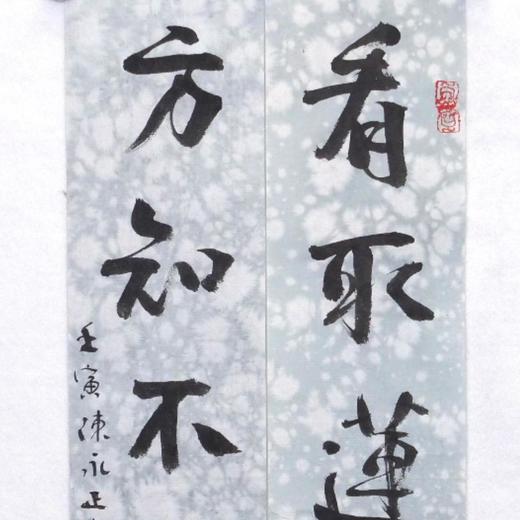 看取蓮
方知不
壬寅陳永正